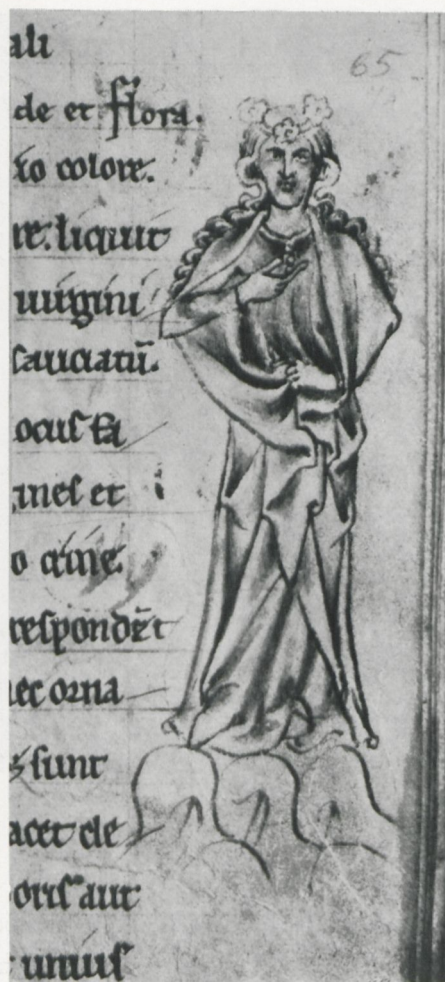 ali
65
de et flora.
to colore.
re. liquit
uirgini
sauciatū.
ocus fa
gines et
o crine.
respondēt
nec orna
sunt
acet ele
oris aut
unius